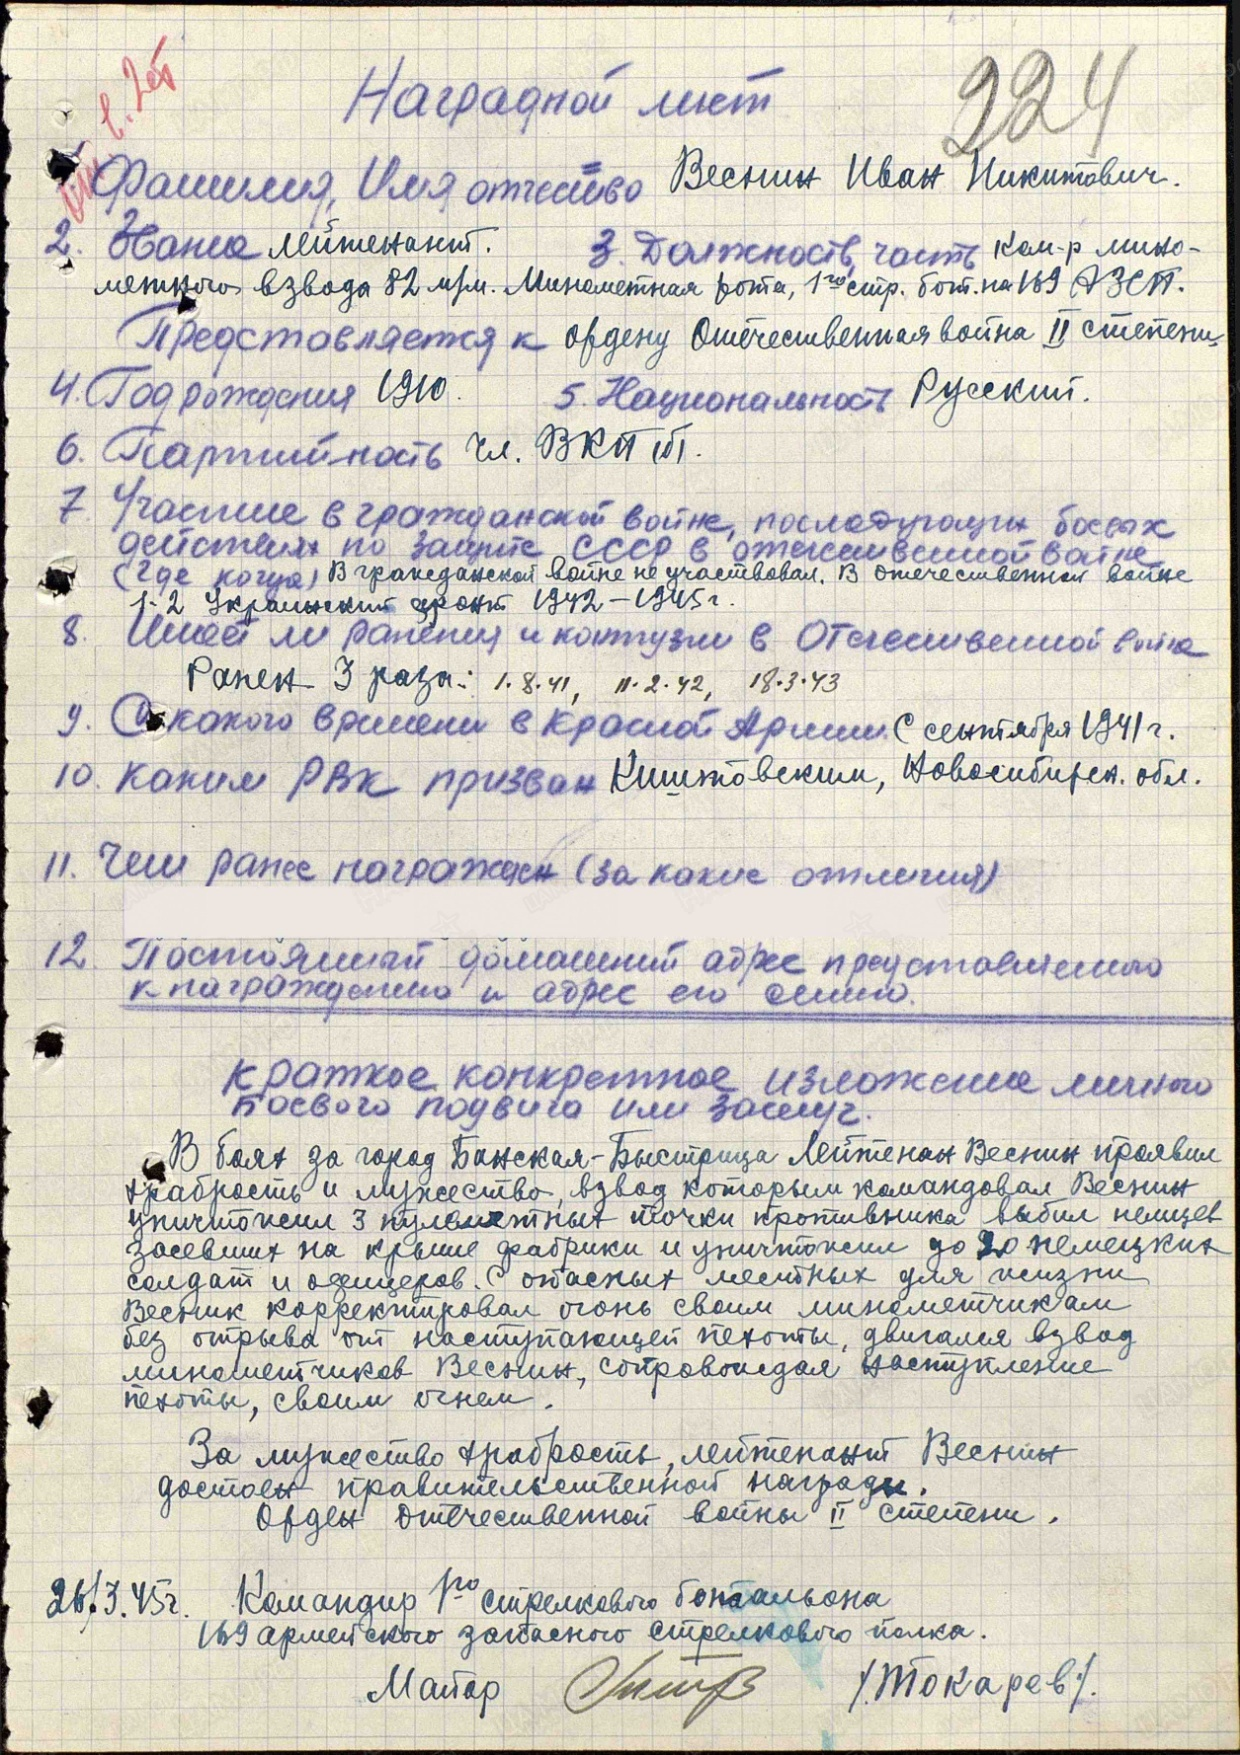 224
Наградной лист
Фамилия, Имя отчество Веснин Иван Никитович.
2. Звание лейтенант. 3. Должность, часть Ком-р мино-
метного взвода 82 м/м. Минометная рота, 1го стр. бат. на 169 АЗСП.
Представляется к ордену Отечественная война II степени
4. Год рождения 1910. 5. Национальность Русский.
6. Партийность чл. ВКП(б).
7. Участие в гражданской войне, последующих боевых
действиях по защите СССР в отечественной войне
(где когда) В гражданской войне не участвовал. В отечественной войне
1-2 Украинский фронт 1942-1945 г.
8. Имеет ли ранения и контузии в Отечественной войне
Ранен 3 раза: 1.8.41, 11.2.42, 18.3.43
9. С какого времени в Красной Армии С сентября 1941 г.
10. Каким РВК призван Киштовским, Новосибирск. обл.
11. Чем ранее награжден (за какие отличия)
12. Постоянный домашний адрес представленного
к награждению и адрес его семьи.
Краткое конкретное изложение личного
боевого подвига или заслуг.
В боях за город Банская-Быстрица Лейтенан Веснин проявил
храбрость и мужество, взвод которым командовал Веснин
уничтожил 3 пулеметных точки противника выбил немцев
засевших на крыше фабрики и уничтожил до 20 немецких
солдат и офицеров. С опасных местных для жизни
Веснин корректировал огонь своим минометчикам
без отрыва от наступающей пехоты, двигался взвод
минометчиков Веснин, сопровождая наступление
пехоты, своим огнем.
За мужество храбрость, лейтенант Веснин
достоен правительственной награды.
Орден Отечественной войны II степени.
26.3.45г. Командир 1го стрелкового батальона
169 армейского запасного стрелкового полка.
Майор /Токарев/.